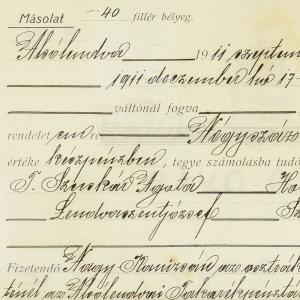 Másolat 40 fillér bélyeg.
Alsólendva 1911 szeptem
1911 deczember hó 17-
váltónál fogva
rendelet em re Négyszáz
értéke készpénzben, tegye számolásba tudó
T. Szucskár Ágota Ho
Lendvaszentjózsef
Fizetendő Nagy-Kanizsán az osztrák
ténél az Alsólendvai Takarékpénztá